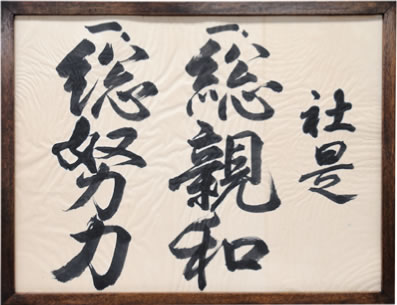 社是
一、総親和
一、総努力